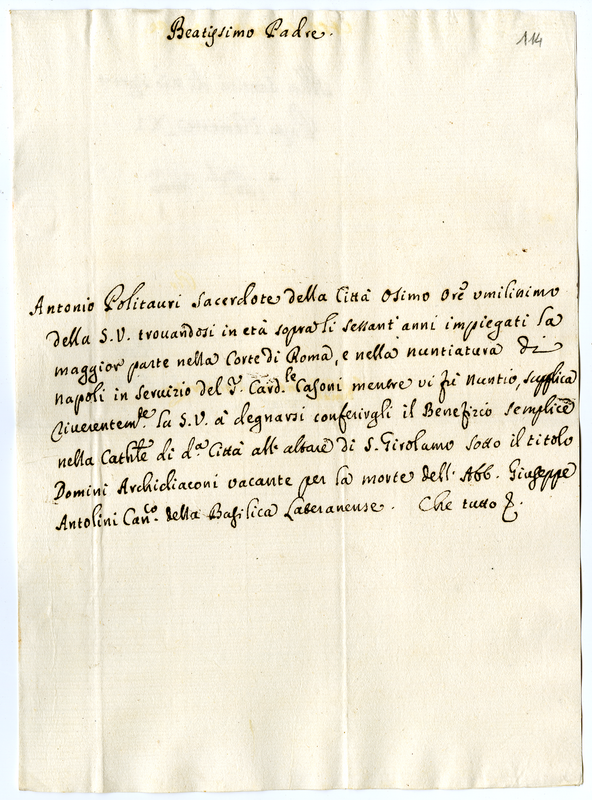 Beatissimo Padre.
114
Antonio Politauri Sacerdote della Città Osimo Ore umilissimo
della S.V. trovandosi in età sopra li sessant'anni impiegati la
maggior parte nella Corte di Roma, e nella nuntiatura di
napoli in servizio del S. Card.le Casoni mentre vi fù Nuntio, supplica
riverentem.te la S.V. à degnarsi conferirgli il Benefizio semplice
nella Cath.le di d.a Città all'altare di S. Girolamo sotto il titolo
Domini Archidiaconi vacante per la morte dell'Abb. Giuseppe
Antolini Can.co della Basilica Lateranense. Che tutto